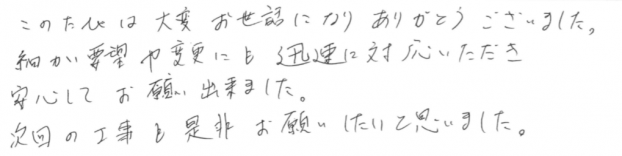 このたびは大変お世話になりありがとうございました。
細かい要望や変更にも迅速に対応いただき
安心してお願い出来ました。
次回の工事も是非お願いしたいと思いました。